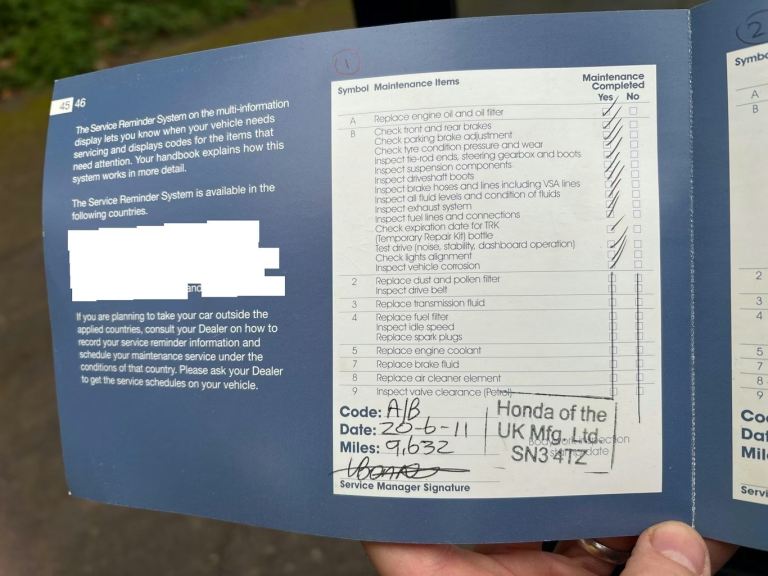 45 46
The Service Reminder System on the multi-information
display lets you know when your vehicle needs
servicing and displays codes for the items that
need attention. Your handbook explains how this
system works in more detail.
The Service Reminder System is available in the
following countries.
If you are planning to take your car outside the
applied countries, consult your Dealer on how to
record your service reminder information and
schedule your maintenance service under the
conditions of that country. Please ask your Dealer
to get the service schedules on your vehicle.
1
Symbol Maintenance Items Maintenance
Completed
Yes No
A Replace engine oil and oil filter
B Check front and rear brakes
Check parking brake adjustment
Check tyre condition pressure and wear
Inspect tie-rod ends, steering gearbox and boots
Inspect suspension components
Inspect driveshaft boots
Inspect brake hoses and lines including VSA lines
Inspect all fluid levels and condition of fluids
Inspect exhaust system
Inspect fuel lines and connections
Check expiration date for TRK
(Temporary Repair Kit) bottle
Test drive (noise, stability, dashboard operation)
Check lights alignment
Inspect vehicle corrosion
2 Replace dust and pollen filter
Inspect drive belt
3 Replace transmission fluid
4 Replace fuel filter
Inspect idle speed
Replace spark plugs
5 Replace engine coolant
7 Replace brake fluid
8 Replace air cleaner element
9 Inspect valve clearance (Petrol)
Code: A/B
Date: 20-6-11
Miles: 9,632
Service Manager Signature
Honda of the
UK Mfg. Ltd.
SN3 4TZ
2
A
B
2
3
4
5
7
8
9